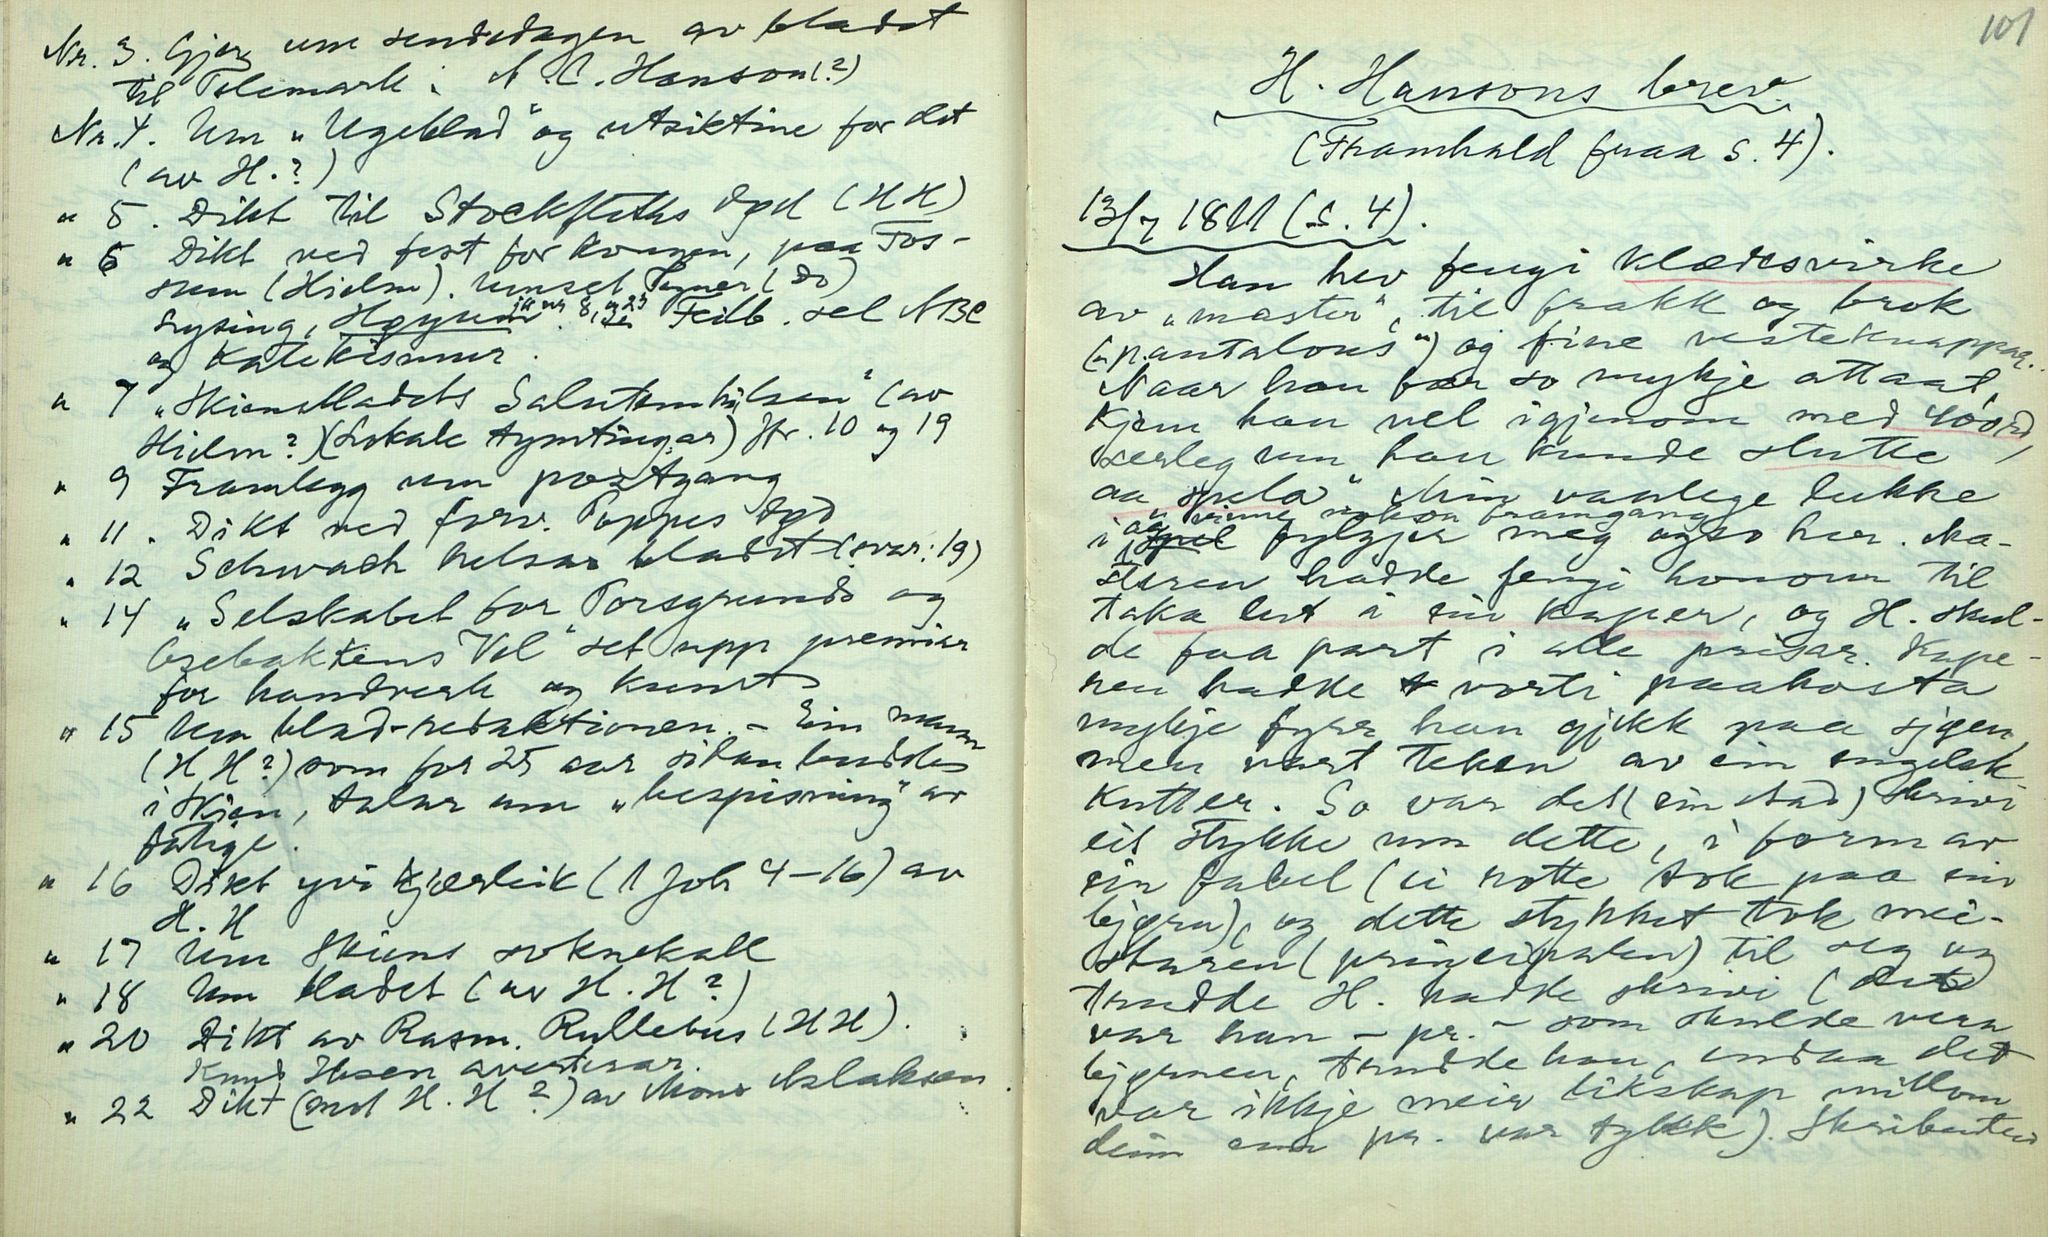 Nr. 3. Gjer um sendedagen av bladet
til Telemark. N. C. Hanson (?)
Nr. 4. Um "Ugeblad" og utsiktine for det
(av H.?)
" 5. Dikt til Stockfleths dgd (HH)
" 6 Dikt ved fest for kongen, paa Fos-
sum (Hielm). Unset Pyner (Do)
lysing, Høyum ik nr 8, og 23 Feilb. sel ABC
og Katekismur.
" 7 "Skiensbladets Salutem hilsen" (av
Hielm?) (Lokale tymtingar) Jfr. 10 og 19
" 9 Framlegg um postgang
" 11. Dikt ved forv. Poppes dgd
" 12 Schwach helsar bladet (svar: 19)
" 14 "Selskabet for Porsgrunds og
Osebakkens Vel" set upp premiar
for handverk og kunst
" 15 Um blad-redaktionen. - Ein mann
(HH?) som for 25 aar sidan budde
i Skien, talar um "bespisning" av
fatige.
" 16 Dikt yvi kjærleik (1 Joh 4-16) av
H. H
" 17 Um Skiens soknekall
" 18 Um bladet (av H. H?)
" 20 Dikt av Rasm. Rullebus (HH).
Knud Ibsen averterar.
" 22 Dikt (mot H. H?) av Mons Aslaksen.
101
H. Hansons brev
(Framhald fraa s. 4).
13/7 1811 (S. 4).
Han hev fengi klædesvirke
av "master" til frakk og brok
("pantalons") og fine vesteknappar.
Naar han fær so mykje attaat,
kjem han vel igjenom med 400 rd,
serleg um han kunde slutte
aa spela". Min vanlege lukke
i aa vinne noksa framgang
spel fylgjer meg ogso her. Ma-
steren hadde fengi honom til
taka lut i ein kaper, og H. skul-
de faa part i alle prisar. Kape-
ren hadde vorti paakosta
mykje fyrr han gjikk paa sjøen,
men vart teken av ein engelsk
kutter. So var det (ein stad) skrivi
eit stykke um dette, i form av
ein fabel (ei rotte tok paa ein
bjørn), og dette stykket tok mei-
staren (principalen) til seg og
trudde H. hadde skrivi (det
var han - pr. - som skulde vera
bjørnen, trudde han, endaa det
var ikkje meir likskap millom
deim enn pr. var tykk). Skribenten